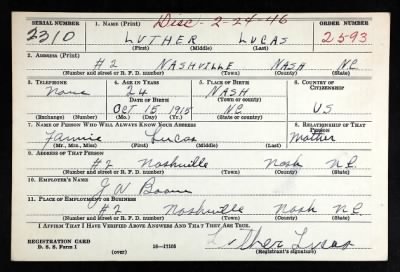 SERIAL NUMBER 1. NAME (Print) Disc - 2-24-46 ORDER NUMBER
2310 LUTHER LUCAS 2593
(First) (Middle) (Last)
2. ADDRESS (Print)
#2 NASHVILLE NASH N.C.
(Number and street or R. F. D. number) (Town) (County) (State)
3. TELEPHONE 4. AGE IN YEARS 5. PLACE OF BIRTH 6. COUNTRY OF CITIZENSHIP
None 24 NASH
DATE OF BIRTH (Town or county)
OCT 15 1915 N.C. US
(Exchange) (Number) (Mo.) (Day) (Yr.) (State or country)
7. NAME OF PERSON WHO WILL ALWAYS KNOW YOUR ADDRESS 8. RELATIONSHIP OF THAT PERSON
Fannie Lucas Mother
(Mr., Mrs., Miss) (First) (Middle) (Last)
9. ADDRESS OF THAT PERSON
#2 Nashville Nash N.C.
(Number and street or R. F. D. number) (Town) (County) (State)
10. EMPLOYER'S NAME
J N Boone
11. PLACE OF EMPLOYMENT OR BUSINESS
#2 Nashville Nash N.C.
(Number and street or R. F. D. number) (Town) (County) (State)
I AFFIRM THAT I HAVE VERIFIED ABOVE ANSWERS AND THAT THEY ARE TRUE.
REGISTRATION CARD Luther Lucas
D. S. S. Form 1 (over) 16—17105 (Registrant's signature)